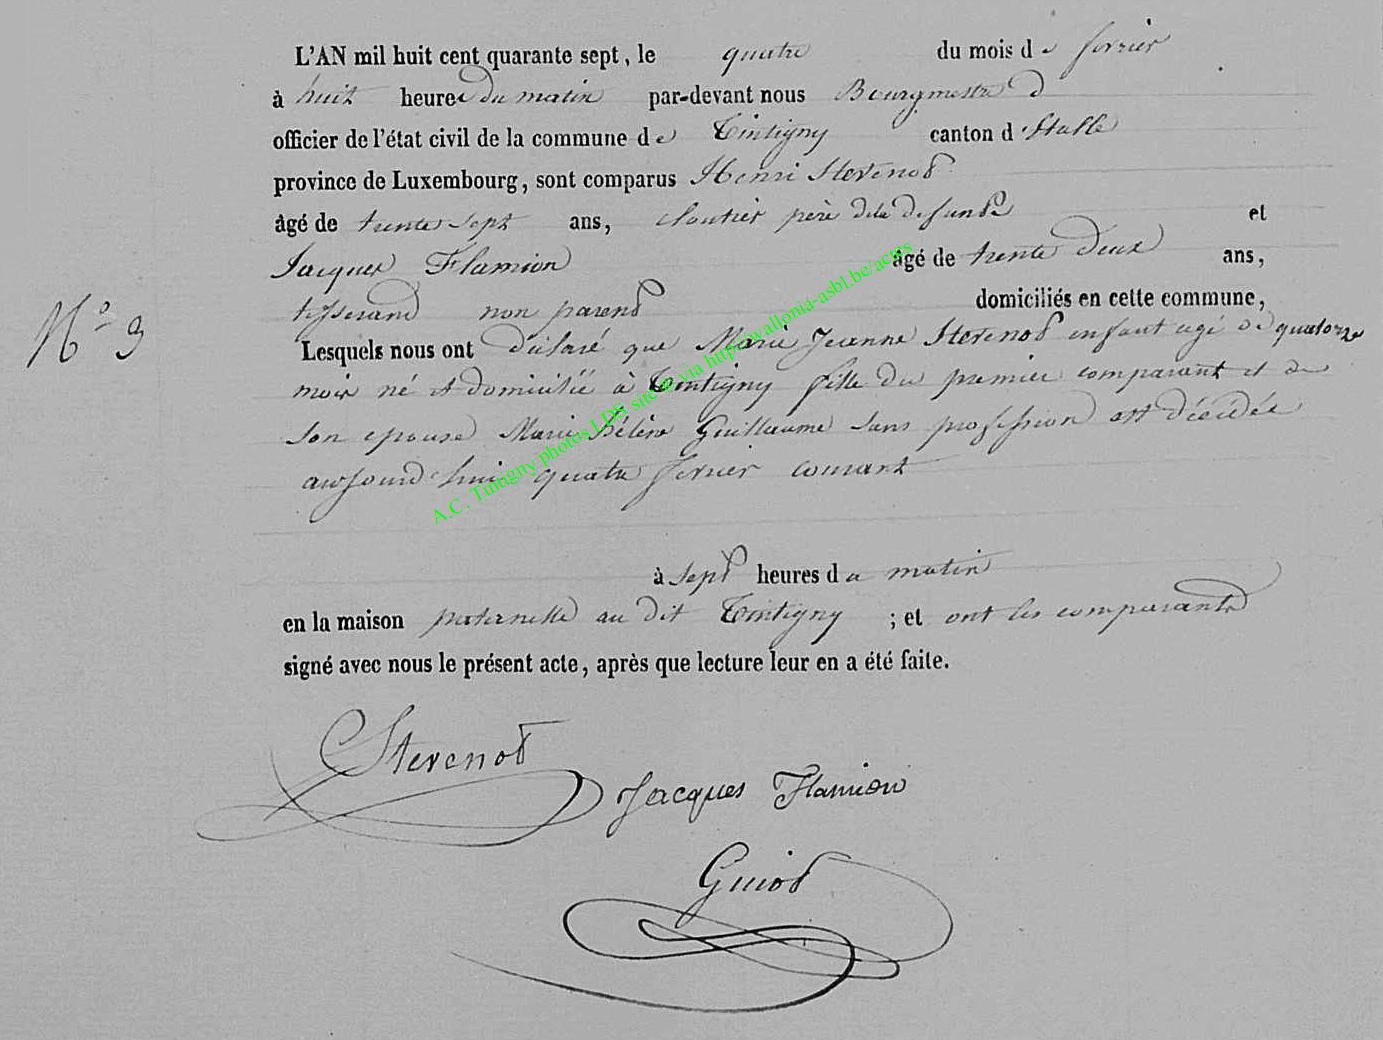 L'AN mil huit cent quarante sept, le quatre du mois de fevrier
à huit heures du matin par-devant nous Bourgmestre
officier de l'état civil de la commune de Tintigny canton d'Etalle
province de Luxembourg, sont comparus Henri Stevenot
âgé de trente sept ans, cloutier père dela defunte et
Jacques Flamion âgé de trente deux ans,
tisserand non parent domiciliés en cette commune,
N° 3
Lesquels nous ont déclaré que Marie Jeanne Stevenot enfant agé de quatorze
mois né et domiciliée à Tintigny fille du premier comparant et de
son epouse Marie Hélène Guillaume sans profession est décédée
aujourd'hui quatre fevrier courant
à sept heures du matin
en la maison paternelle au dit Tintigny ; et ont les comparants
signé avec nous le présent acte, après que lecture leur en a été faite.
Stevenot
Jacques Flamion
Guiot
A.C. Tintigny photos LDS site @ via http://wallonia-asbl.be/actes